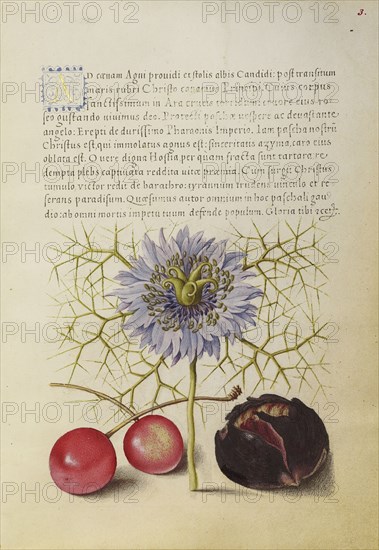 3.
AD cœnam Agni prouidi et stolis albis Candidi: post transitum
maris rubri Christo canamus Principi. Cuius corpus
sanctissimum in Ara crucis torridum cruore eius ro-
seo gustando uiuimus deo. Protecti paschæ uespere ac deuastante
angelo: Erepti de durissimo Pharaonis Imperio. Iam pascha nostrũ
Christus est, qui immolatus agnus est: sinceritatis azyma, caro eius
oblata est. O uere digna Hostia per quam fracta sunt tartara: re-
dempta plebs captiuata reddita uitæ præmia. Cum surgit Christus
tumulo victor redit de barathro: tyrannum trudens uinculo et re-
serans paradisum. Quæsumus autor omnium in hoc paschali gau
dio: ab omni mortis impetu tuum defende populum. Gloria tibi